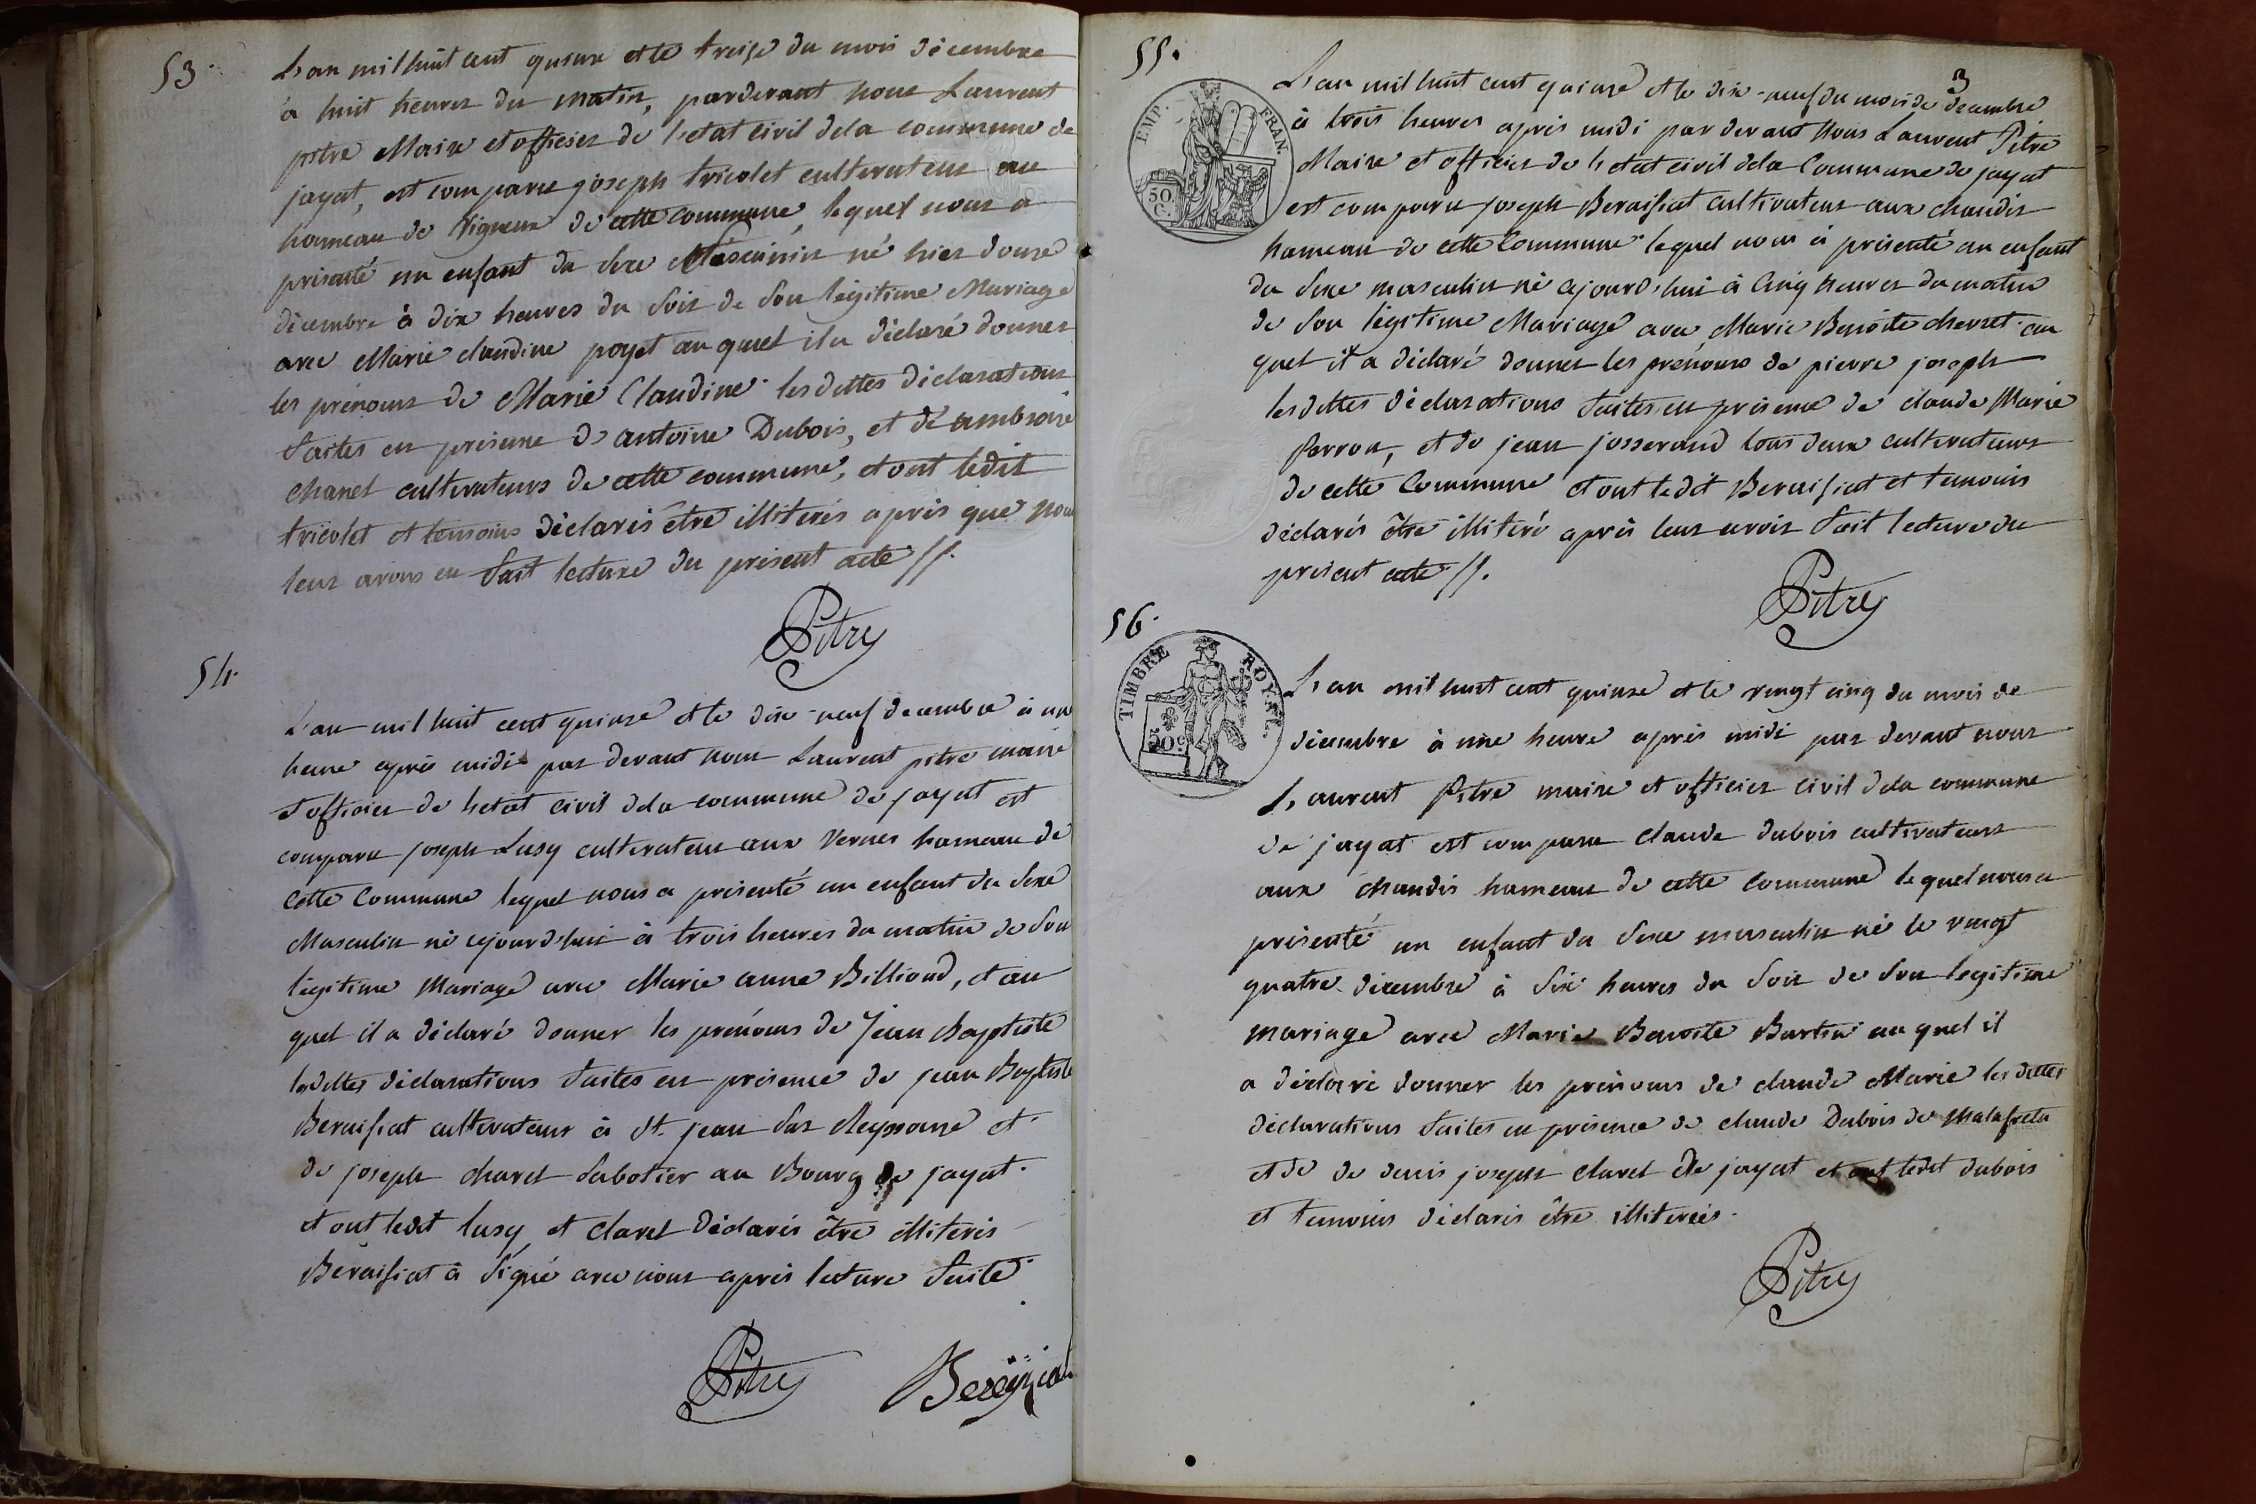 53.
L'an mil huit cent quinze et le treize du mois décembre
à huit heures du matin, pardevant nous Laurent
pitre Maire et officier de l'etat civil dela commune de
jayat, est comparu joseph tricolet cultivateur au
hameau de Vigneux de cette commune, lequel nous a
présenté un enfant du sexe féminin né hier douze
décembre à dix heures du soir de son légitime Mariage
avec Marie claudine poyet au quel il a déclaré donner
les prénoms de Marie Claudine lesdittes déclarations
faites en présence de antoine Dubois, et de ambroise
chanel cultivateurs de cette commune, et ont ledit
tricolet et temoins déclarés être illiterés après que nous
leur avons eu fait lecture du présent acte //.
Pitre
54.
L'an mil huit cent quinze et le dix-neuf decembre à une
heure après midi par devant nous Laurent pitre maire
et officier de l'etat civil dela commune de jayat est
comparu joseph Lusy cultivateur aux Vernes hameau de
cette Commune lequel nous a présenté un enfant du sexe
Masculin né ajourd'hui à trois heures du matin de son
légitime Mariage avec Marie anne Billioud, et au
quel il a déclaré donner les prénoms de Jean Baptiste
lesdittes déclarations faites en présence de jean Baptiste
Beraisiat cultivateur à St. jean sur Reyssouse et
de joseph claret sabotier au Bourg de jayat.
et ont ledit lusy et claret déclarés être illiterés
Béraisiat à signé avec nous après lecture faite
Pitre Bereyziat
55.
3
L'an mil huit cent quinze et le dix-neuf du mois de decembre
à trois heures après midi par devant nous Laurent Pitre
Maire et officier de l'etat civil dela Commune de jayat
est comparu joseph Beraisiat cultivateur aux chaudis
hameau de cette Commune lequel nous à présenté un enfant
du sexe masculin né ajourd'hui à Cinq heures du matin
de son légitime Mariage avec Marie Benoite chevret au
quel il a déclaré donner les prénoms de pierre joseph
lesdittes déclarations faites en présence de claude Marie
Perron, et de jean josserand tous deux cultivateurs
de cette Commune et ont ledit Beraisiat et temoins
déclarés être illitéré après leur avoir fait lecture du
présent acte //.
Pitre
EMP. FRAN.
50 C.
56.
TIMBRE ROYAL
50 c
L'an mil huit cent quinze et le vingt cinq du mois de
décembre à une heure après midi par devant nous
Laurent Pitre maire et officier civil dela commune
de jayat est comparu claude dubois cultivateur
aux chaudis hameau de cette commune lequel nous a
présenté un enfant du sexe masculin né le vingt
quatre décembre à six heures du soir de son legitime
mariage avec Marie Benoite Burtin au quel il
a déclaré donner les prénoms de claude Marie les dittes
déclarations faites en présence de claude Dubois de Malafreta
et de de denis joseph claret de jayat et ont ledit dubois
et temoins déclarés être illiterés.
Pitre